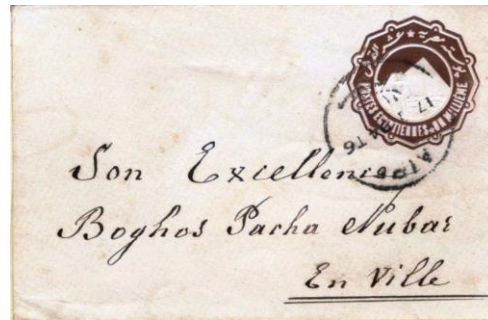 POSTES EGYPTIENNES
UN MILLIEME
Son Excellence
Boghos Pacha Nubar
En Ville